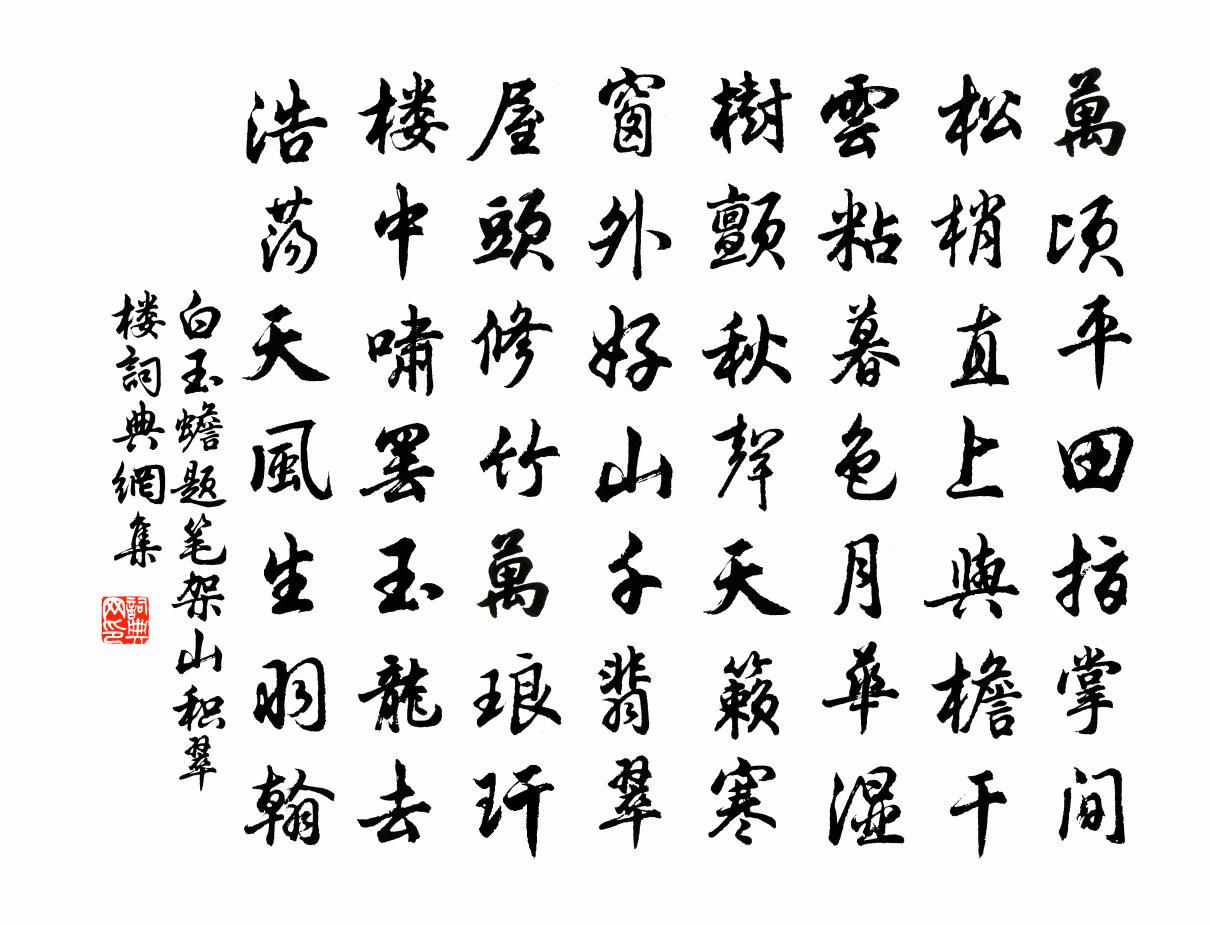 萬頃平田指掌間
松梢直上與檐干
雲粘暮色月華湿
樹顫秋聲天籟寒
窗外好山千翡翠
屋頭修竹萬琅玕
楼中嘯罢玉龍去
浩荡天風生羽翰
白玉蟾题笔架山积翠
楼詞典網集
詞典
网印